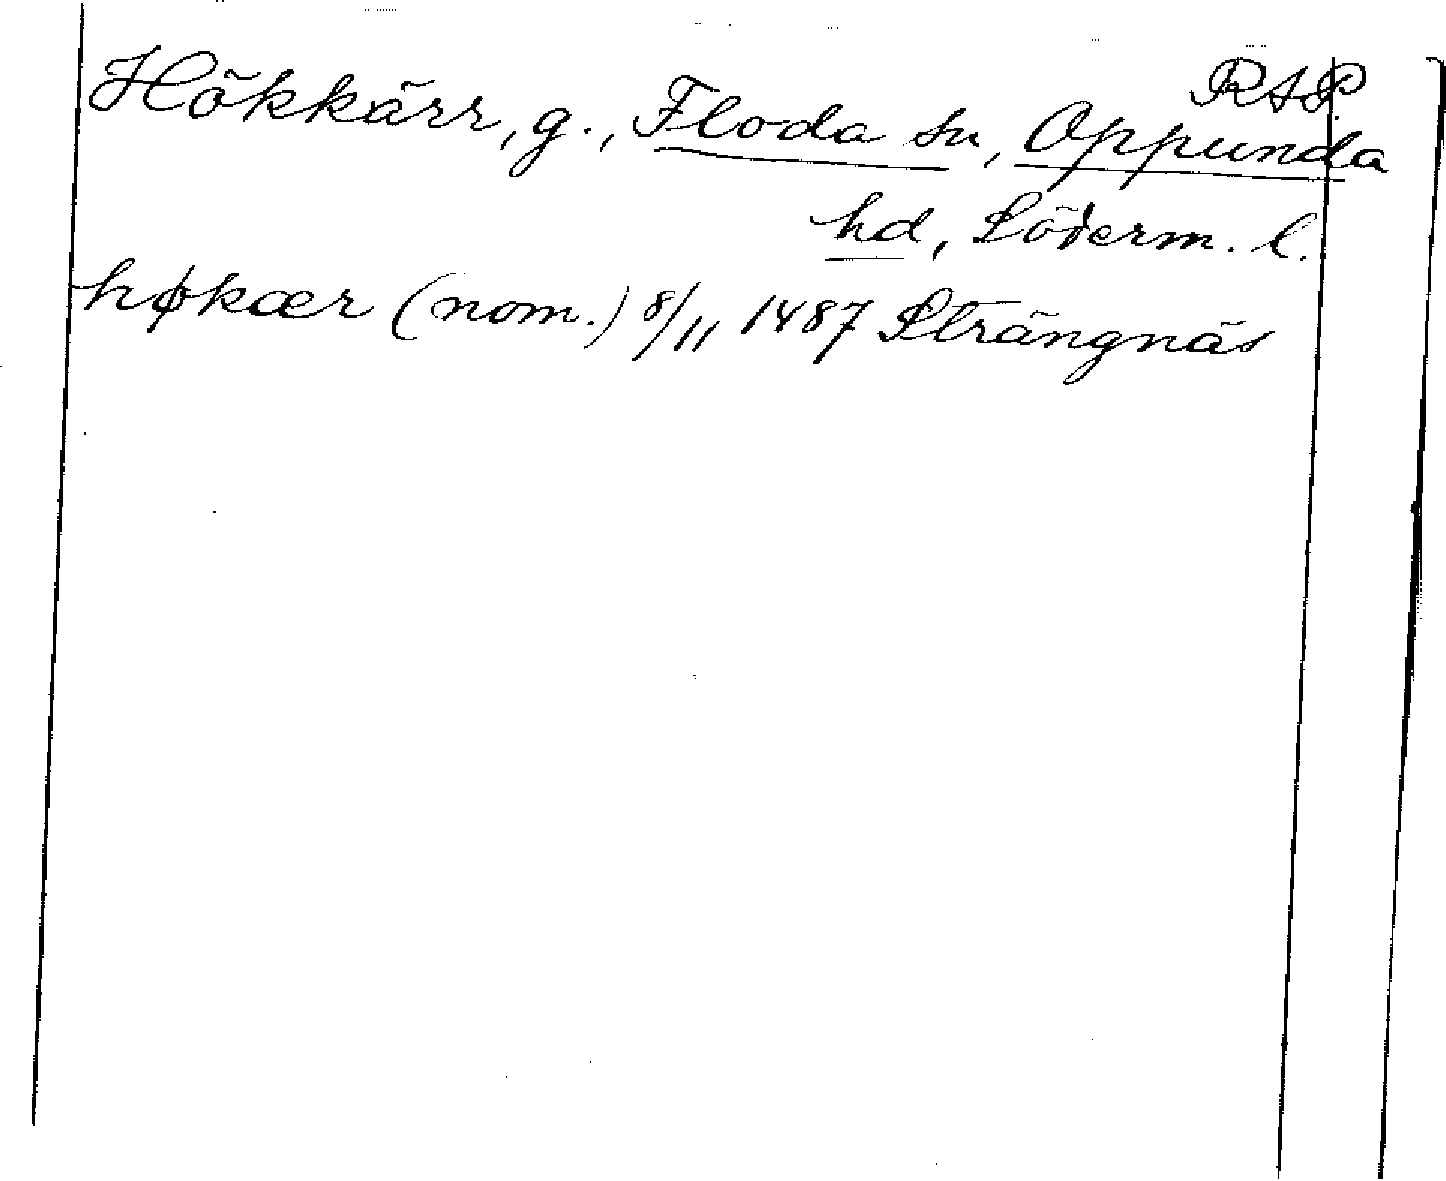 RAP.
Hökkärr, g., Floda sn, Oppunda
hd, Söderm. l.
høkær (nom.) 8/11 1487 Strängnäs